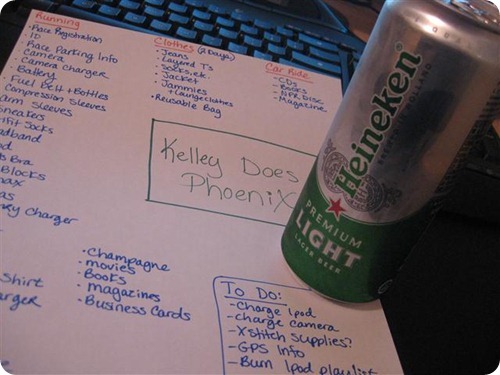 Running
• Race Registration
• ID
Race Parking Info
Camera
Camera Charger
Battery
Fuel Belt + Bottles
Compression Sleeves
Arm Sleeves
Sneakers
Socks
Bra
Blocks
Charger
Shirt
Clothes (2 Days)
• Jeans
• Layered T's
• Socks, etc.
• Jacket
• Jammies
+ Loungeclothes
• Reusable Bag
Car Ride
- CDs
- Books
- NPR Disc
- Magazine
Kelley Does
Phoenix
• Champagne
• movies
• Books
• magazines
• Business Cards
To Do:
- Charge Ipod
- Charge camera
- Xstitch Supplies?
- GPS Info
- Burn Ipod playlist
Heineken
PREMIUM
LIGHT
LAGER BEER